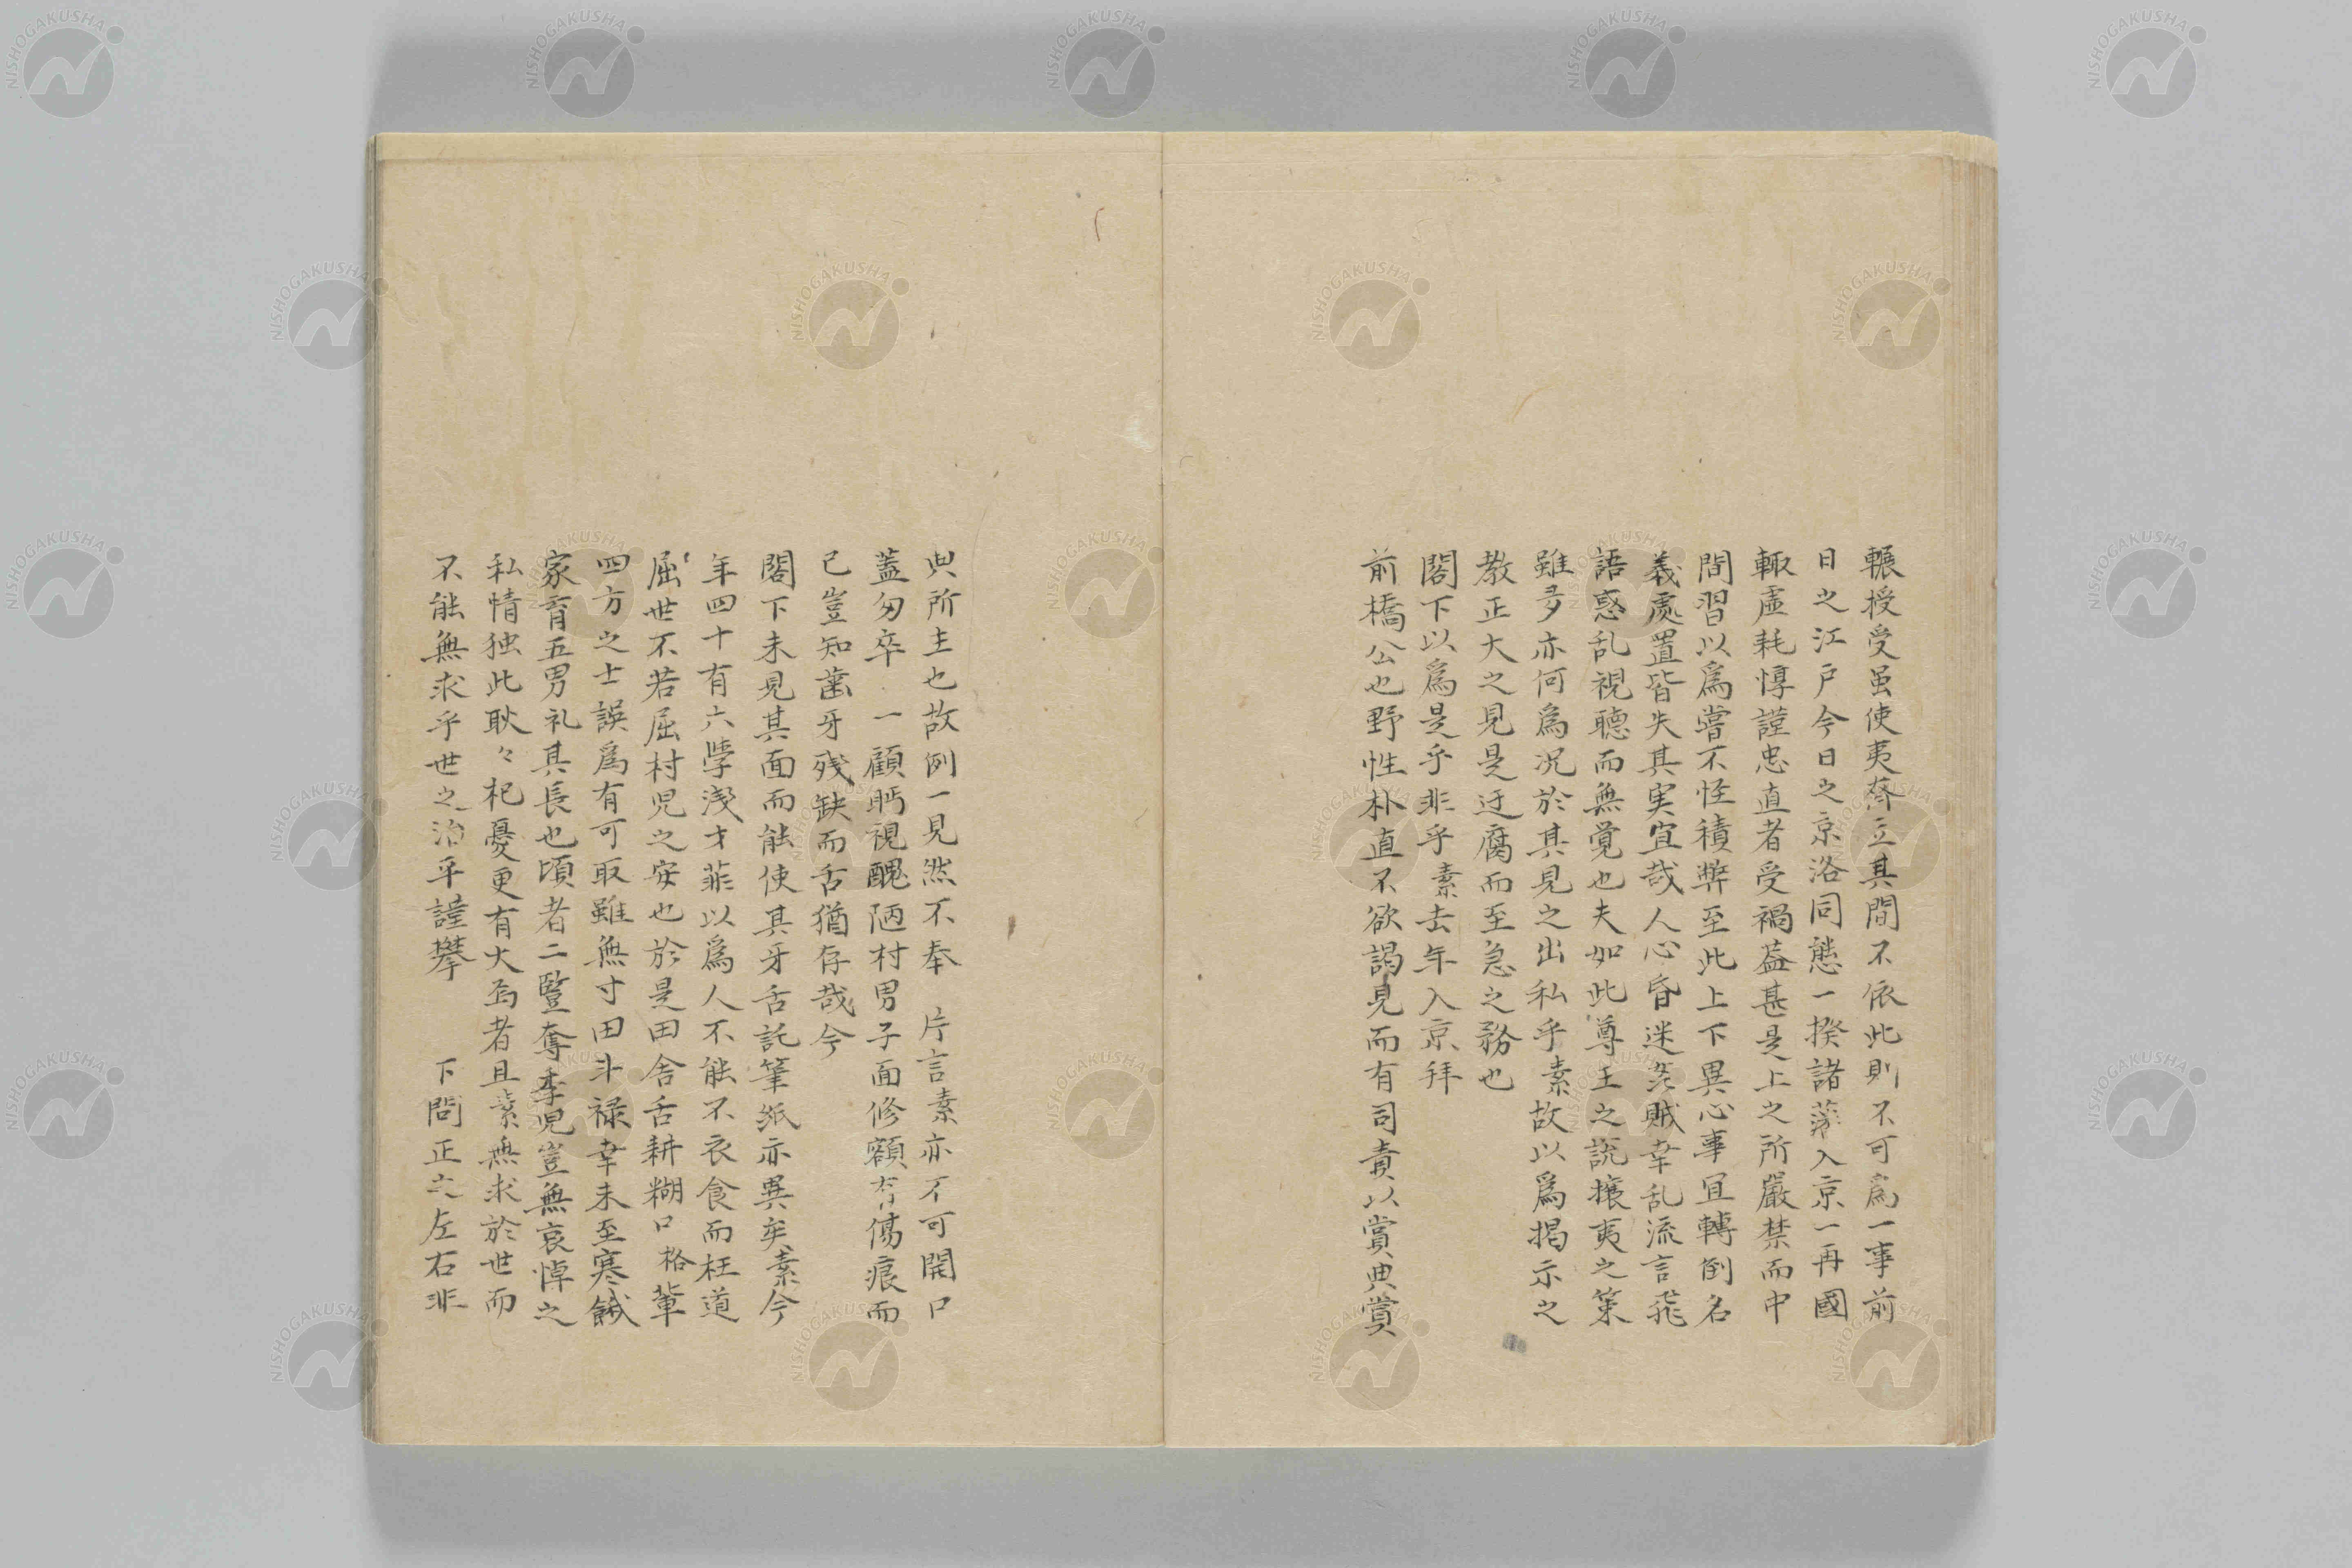 輾授受虽使夷齊立其間不依此則不可爲一事前
日之江戸今日之京洛同態一揆諸藩入京一再國
輙虛耗惇謹忠直者受禍益甚是上之所嚴禁而中
間習以爲嘗不怪積弊至此上下異心事冝轉倒名
義處置皆失其実宜哉人心昏迷姦賊幸乱流言飛
語惑乱視聴而無覚也夫如此尊王之説攘夷之策
雖多亦何爲況於其見之出私乎素故以爲掲示之
教正大之見是迂腐而至急之務也
閣下以爲是乎非乎素去年入京拜
前橋公也野性朴直不欲謁見而有司責以賞典賞
典所主也故例一見然不奉 片言素亦不可開口
蓋匆卒一顧眄視醜陋村男子面修額有傷痕而
已豈知齒牙残缺而舌猶存哉今
閣下未見其面而能使其牙舌託筆紙亦異矣素今
年四十有六學淺才菲以爲人不能不衣食而枉道
屈世不若屈村児之安也於是田舎舌耕糊口格輩
四方之士誤爲有可取雖無寸田斗禄幸未至寒餓
家育五男礼其長也頃者二豎奪季児豈無哀悼之
私情独此耿々杞憂更有大焉者且素無求於世而
不能無求乎世之治平謹攀 下問正之左右非
NISHOGAKUSHA